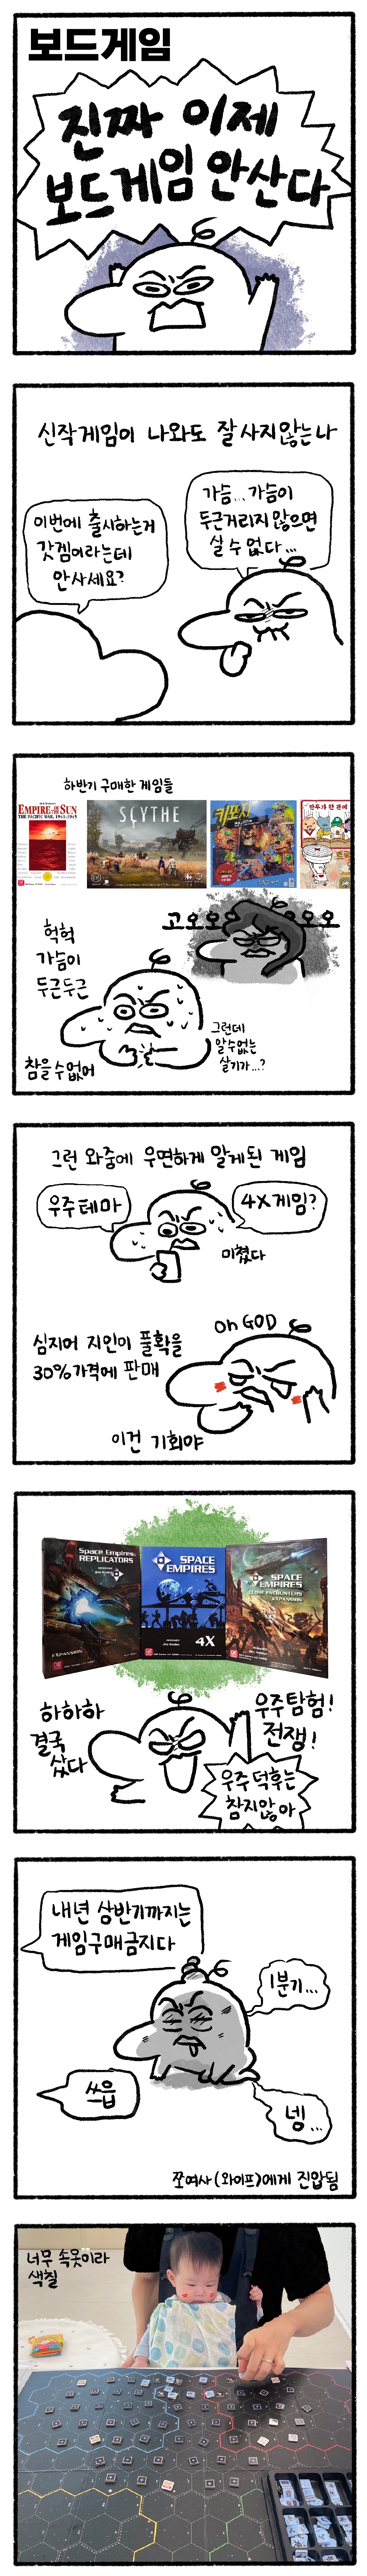 보드게임
진짜 이제
보드게임 안산다
신작게임이 나와도 잘 사지않는 나
이번에 출시하는거
갓겜이라는데
안사세요?
가슴...가슴이
두근거리지 않으면
살 수 없다...
하반기 구매한 게임들
EMPIRE OF THE SUN
THE PACIFIC WAR, 1941-1945
SCYTHE
키포지
만두가 한 판에
고오오오 오오오
헉헉
가슴이
두근두근
참을수없어
그런데
알수없는
살기가...?
그런 와중에 우연하게 알게된 게임
우주테마
4X게임?
미쳤다
심지어 지인이 풀확을
30%가격에 판매
oh GOD
이건 기회야
Space Empires:
REPLICATORS
EXPANSION
SPACE
EMPIRES
4X
SPACE
EMPIRES
CLOSE ENCOUNTERS
EXPANSION
하하하
결국
샀다
우주탐험!
전쟁!
우주 덕후는
참지않아
내년 상반기까지는
게임구매금지다
1분기...
쓰읍
넹...
쪼여사(와이프)에게 진압됨
너무 속옷이라
색칠